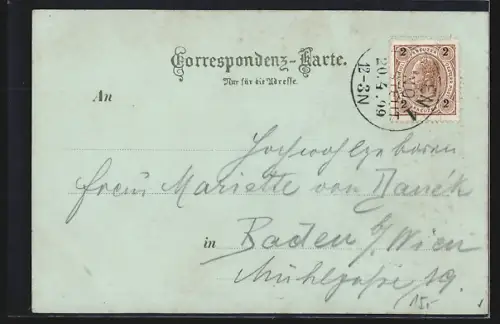 Correspondenz-Karte.
Nur für die Adresse.
2 2
2 2
20.4.99
12-3N
An
Hochwohlgeboren
Mariette von
in Baden b/ Wien
Mühlgasse 19.
15.-